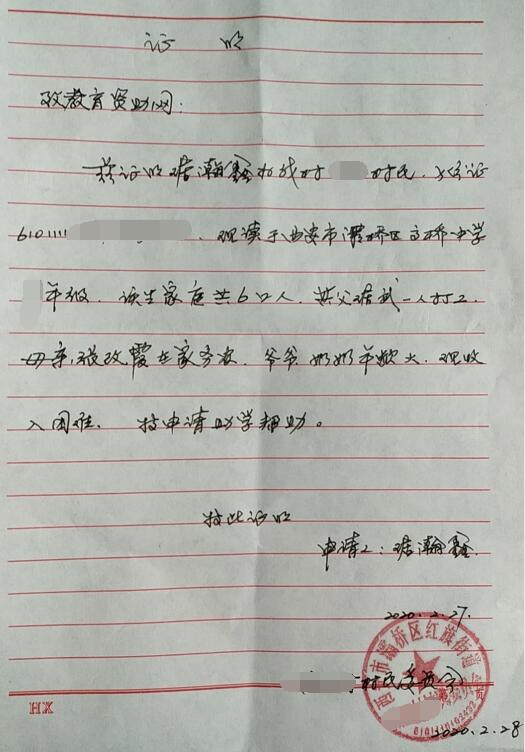 证 明
致教育资助网:
兹证明 瀚鑫 我村 村民,
610111 、现读于西安市灞桥区 桥中学
年级、该生家庭共6口人,其父 武一人打工,
母亲 改霞在家务农、爷爷奶奶年龄大,现收
入困难、特申请助学帮助。
特此证明
申请人: 瀚鑫
2020.2.27.
市灞桥区红旗街道
村民委员会
2020.2.28
HX